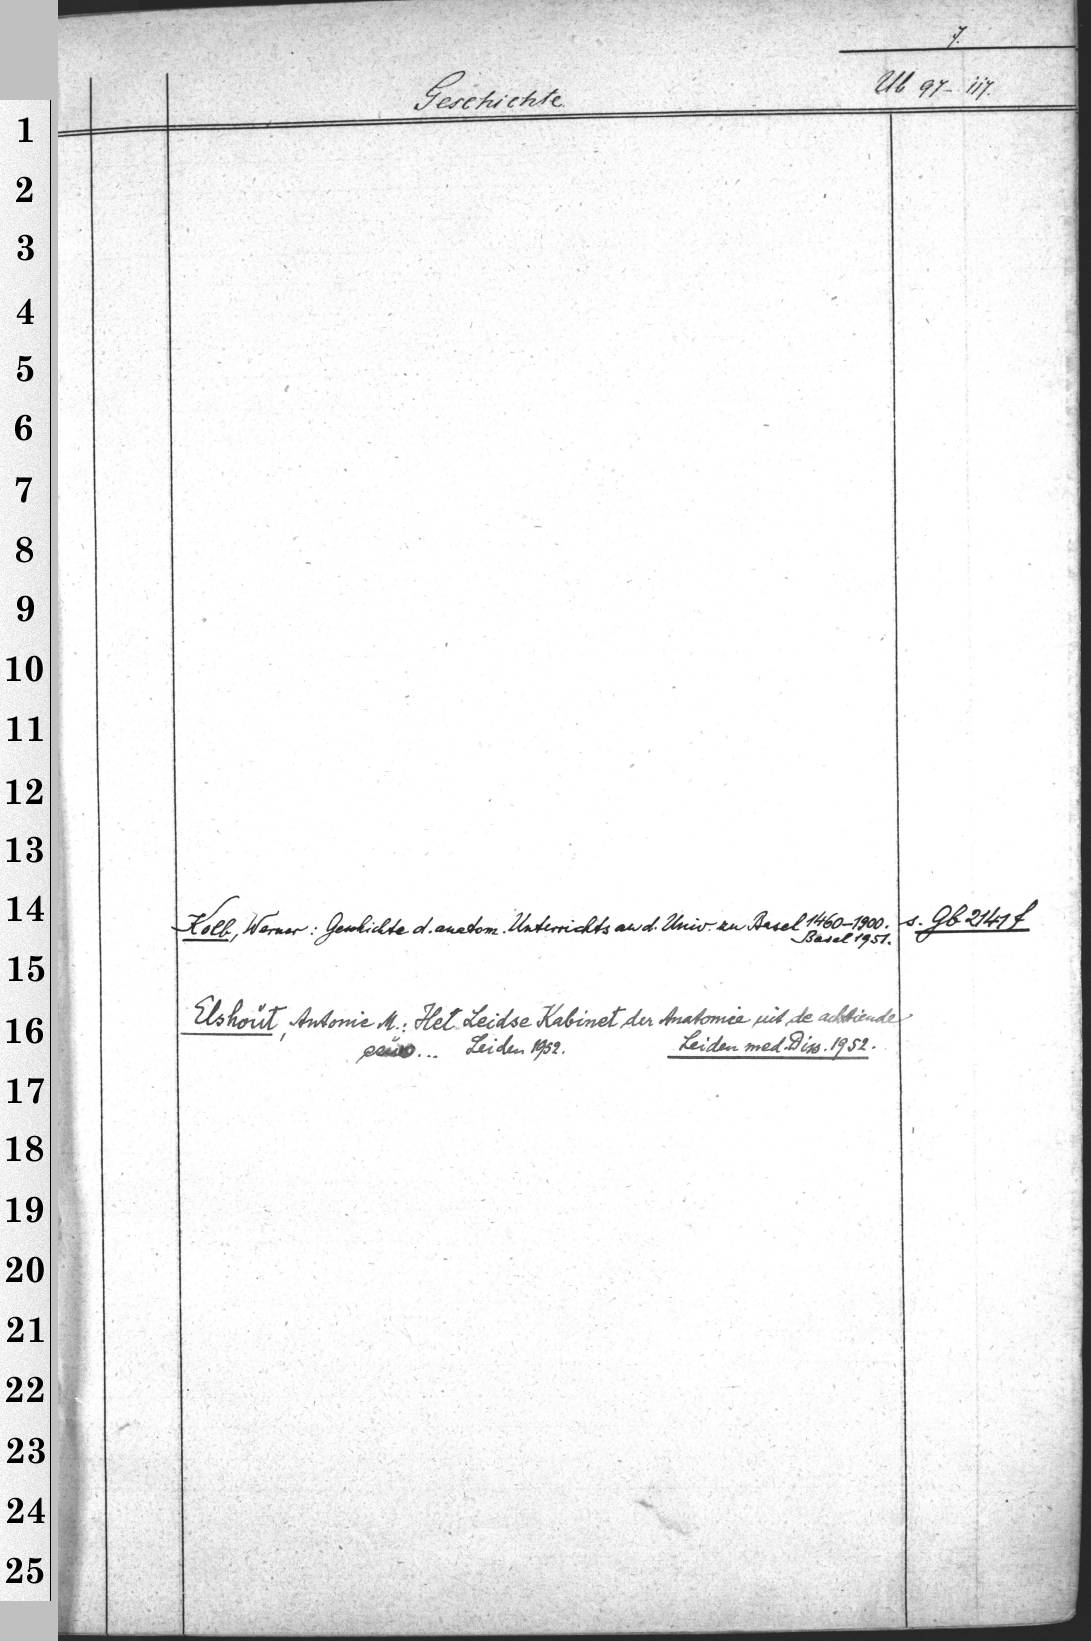 7.
Geschichte
Ub 97- 117.
1
2
3
4
5
6
7
8
9
10
11
12
13
14
Kolb, Werner: Geschichte d. anatom. Unterrichts an d. Univ. zu Basel 1460-1900. s. Gb 2141 f
Basel 1951.
15
Elshoŭt, Antonie M.: Het Leidse Kabinet der Anatomie uit de achttiende
16
eeuw... Leiden 1952. Leiden med. Diss. 1952.
17
18
19
20
21
22
23
24
25